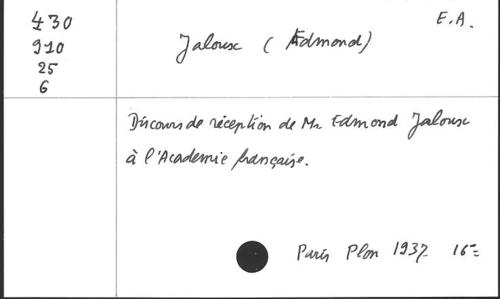 430
910
25
6
E.A.
Jaloux (Edmond)
Discours de réception de Mr Edmond Jaloux
à l'Academie française.
Paris Plon 1937. 16=